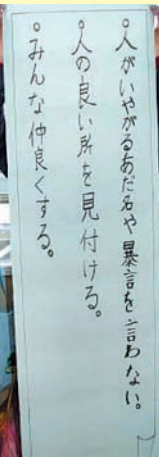 ○人がいやがるあだ名や暴言を言わない。
○人の良い所を見付ける。
○みんな仲良くする。